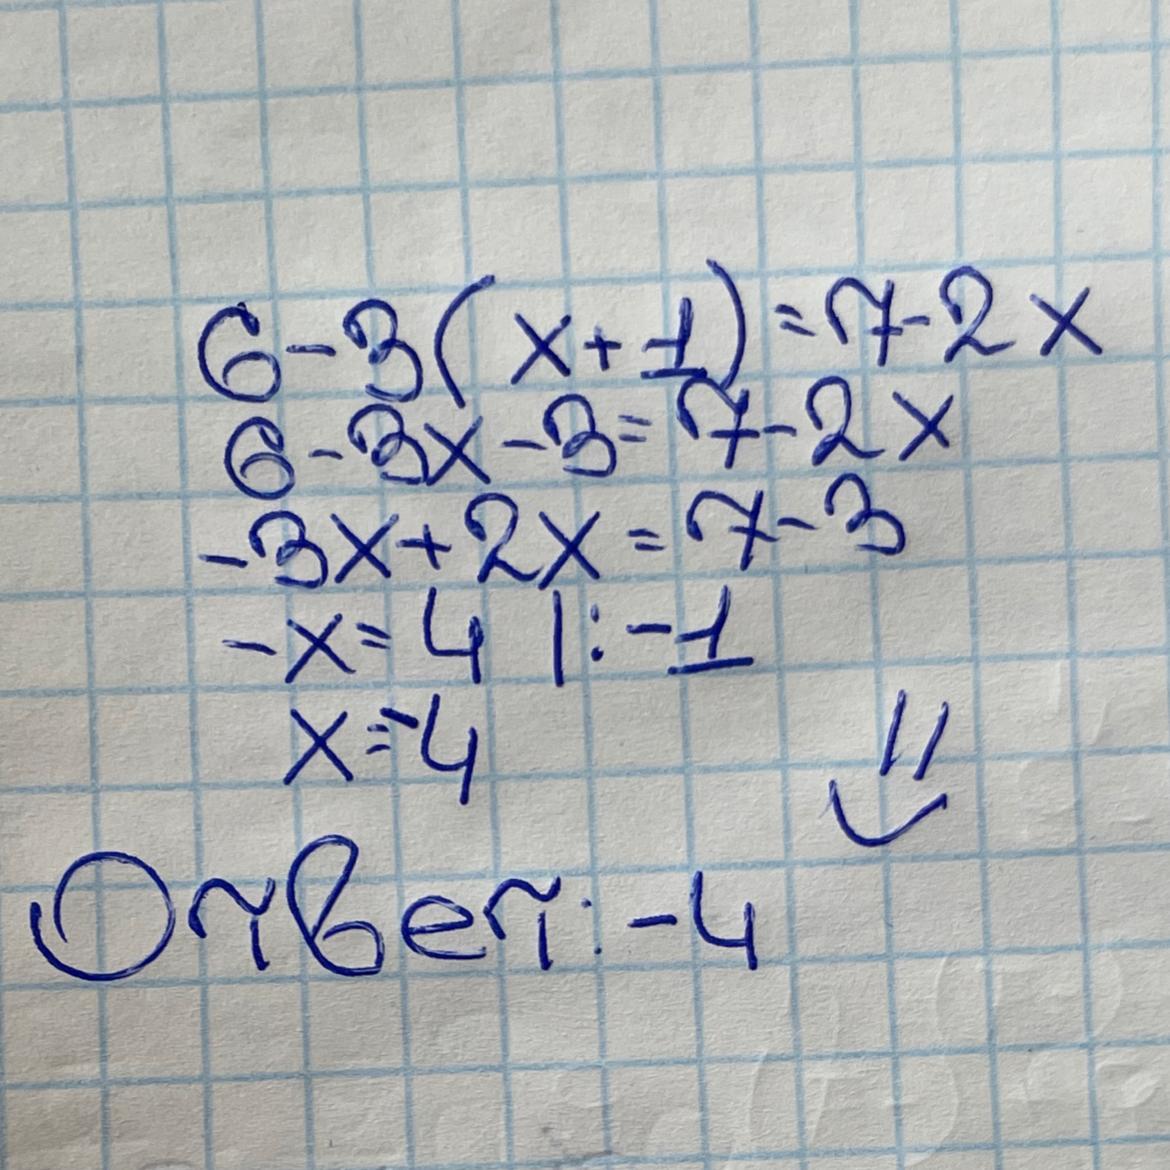 6-3(x+1)=7-2x
6-3x-3=7-2x
-3x+2x=7-3
-x=4 |:-1
x=-4
Ответ:-4